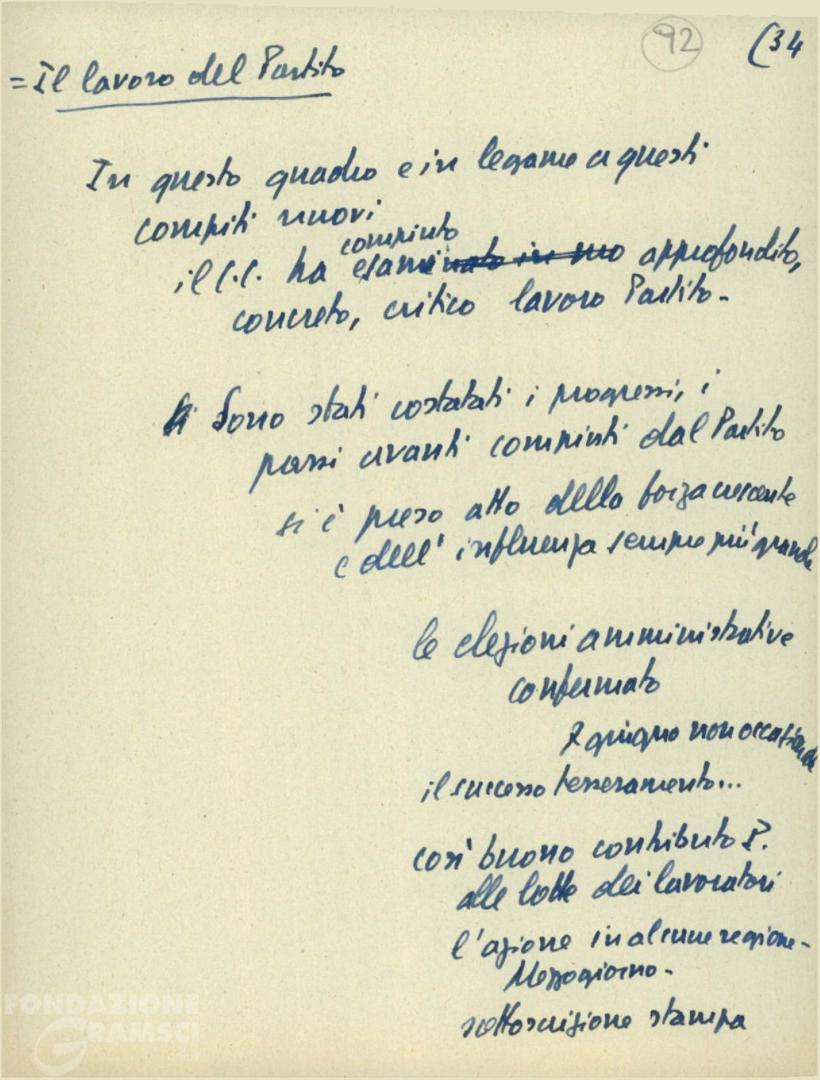 92
(34
= Il lavoro del Partito
In questo quadro e in legame a questi
compiti nuovi
compiuto
il C.C. ha esaminato in suo approfondito,
concreto, critico lavoro Partito -
Sono stati costatati i progressi, i
passi avanti compiuti dal Partito
si è preso atto della forza crescente
e dell'influenza sempre più grande
le elezioni amministrative
confermato
7 giugno non occasionale
il successo tesseramento...
così buono contributo P.
alle lotte dei lavoratori
l'azione in alcune regione -
Mezzogiorno -
sottoscrizione stampa
FONDAZIONE
GRAMSCI